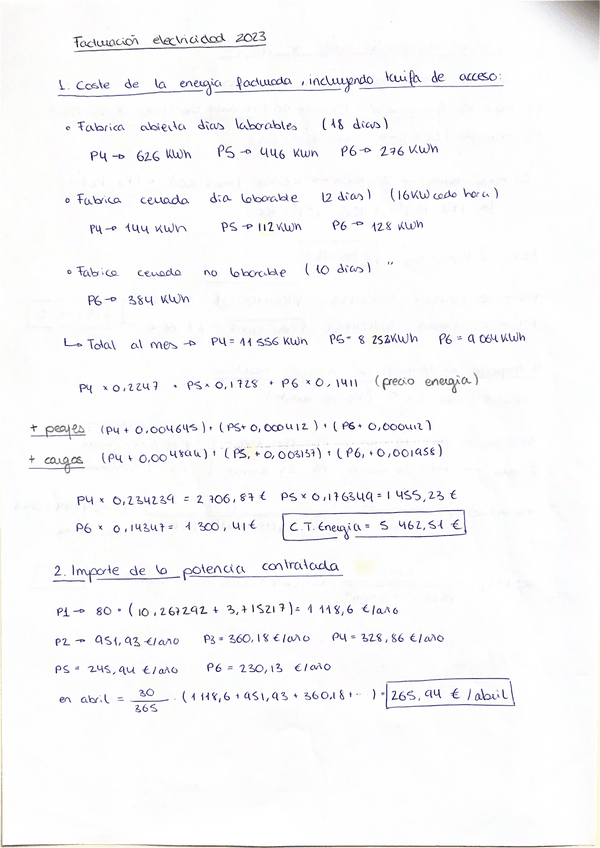 Facturación electricidad 2023
1. Coste de la energia facturada, incluyendo tarifa de acceso:
• Fabrica abierta dias laborables (18 dias)
P4 → 626 KWh P5 → 446 KWh P6 → 276 KWh
• Fabrica cerrada dia laborable (2 dias) (16KW cada hora)
P4 → 144 KWh P5 → 112 KWh P6 → 128 KWh
• Fabrica cerrada no laborable (10 dias) "
P6 → 384 KWh
↳ Total al mes → P4 = 11 556 KWh P5 = 8 252 KWh P6 = 9 064 KWh
P4 × 0,2247 + P5 × 0,1728 + P6 × 0,1411 (precio energia)
+ peajes (P4 + 0,004645) + (P5 + 0,000412) + (P6 + 0,000412)
+ cargos (P4 + 0,004894) + (P5, + 0,003137) + (P6, + 0,001958)
P4 × 0,234239 = 2 706,87 € P5 × 0,176349 = 1 455,23 €
P6 × 0,14347 = 1 300,41 € C.T. Energia = 5 462,51 €
2. Importe de la potencia contratada
P1 → 80 · (10,267292 + 3,715217) = 1 118,6 €/año
P2 → 951,93 €/año P3 = 360,18 €/año P4 = 328,86 €/año
P5 = 245,94 €/año P6 = 230,13 €/año
en abril = 30/365 · (1 118,6 + 951,93 + 360,18 + ··) = 265,94 €/abril